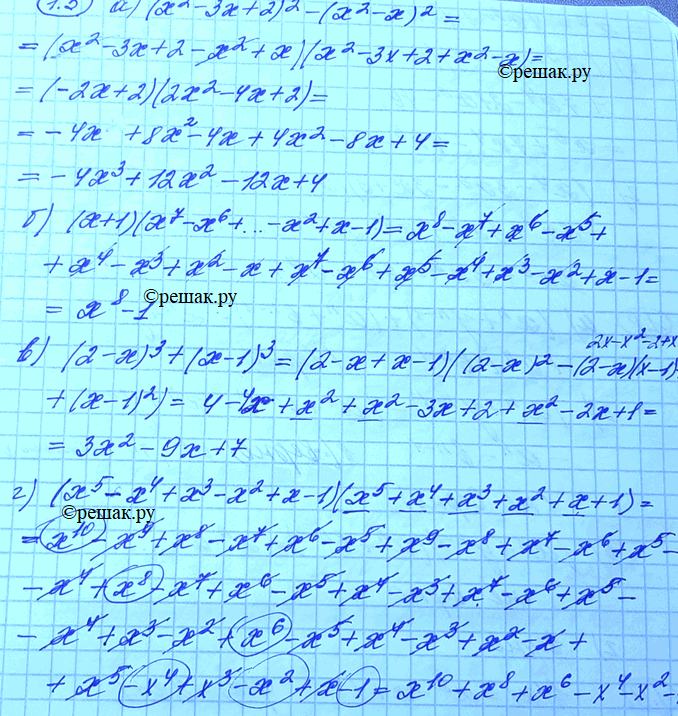 1.2) а) (x²-3x+2)² - (x²-x)² =
= (x²-3x+2-x²+x)(x²-3x+2+x²-x)=
©решак.ру
= (-2x+2)(2x²-4x+2)=
= -4x +8x²-4x+4x²-8x+4=
= -4x³+12x²-12x+4
б) (x+1)(x⁷-x⁶+...-x²+x-1)= x⁸-x⁷+x⁶-x⁵+
+x⁴-x³+x²-x+x⁷-x⁶+x⁵-x⁴+x³-x²+x-1=
= x⁸-1
©решак.ру
2x-x²-2+x
в) (2-x)³+(x-1)³=(2-x+x-1)((2-x)²-(2-x)(x-1)
+(x-1)²)= 4-4x+x²+x²-3x+2+x²-2x+1=
= 3x²-9x+7
г) (x⁵-x⁴+x³-x²+x-1)(x⁵+x⁴+x³+x²+x+1)=
©решак.ру
= x¹⁰-x⁹+x⁸-x⁷+x⁶-x⁵+x⁹-x⁸+x⁷-x⁶+x⁵-
-x⁴+x⁸-x⁷+x⁶-x⁵+x⁴-x³+x⁷-x⁶+x⁵-
-x⁴+x³-x²+x⁶-x⁵+x⁴-x³+x²-x+
+x⁵-x⁴+x³-x²+x-1= x¹⁰+x⁸+x⁶-x⁴-x²-